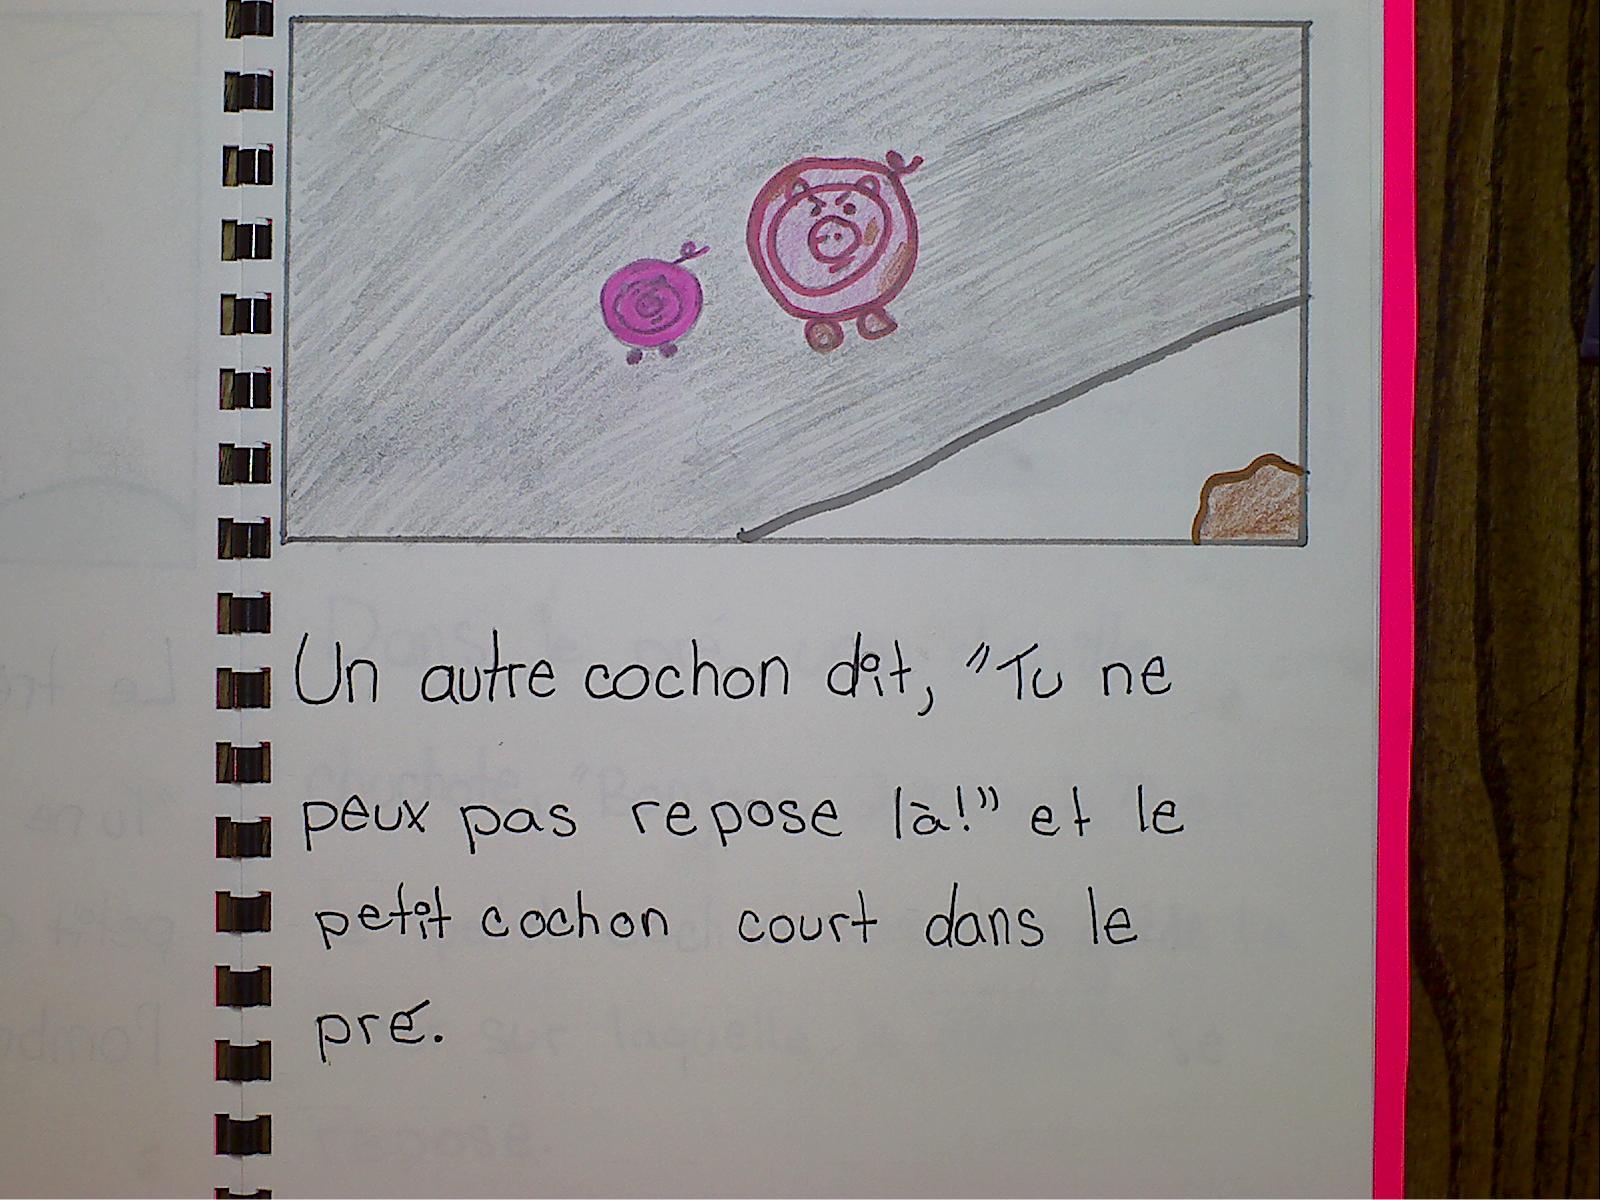 Un autre cochon dit, "Tu ne
peux pas repose là!" et le
petit cochon court dans le
pré.